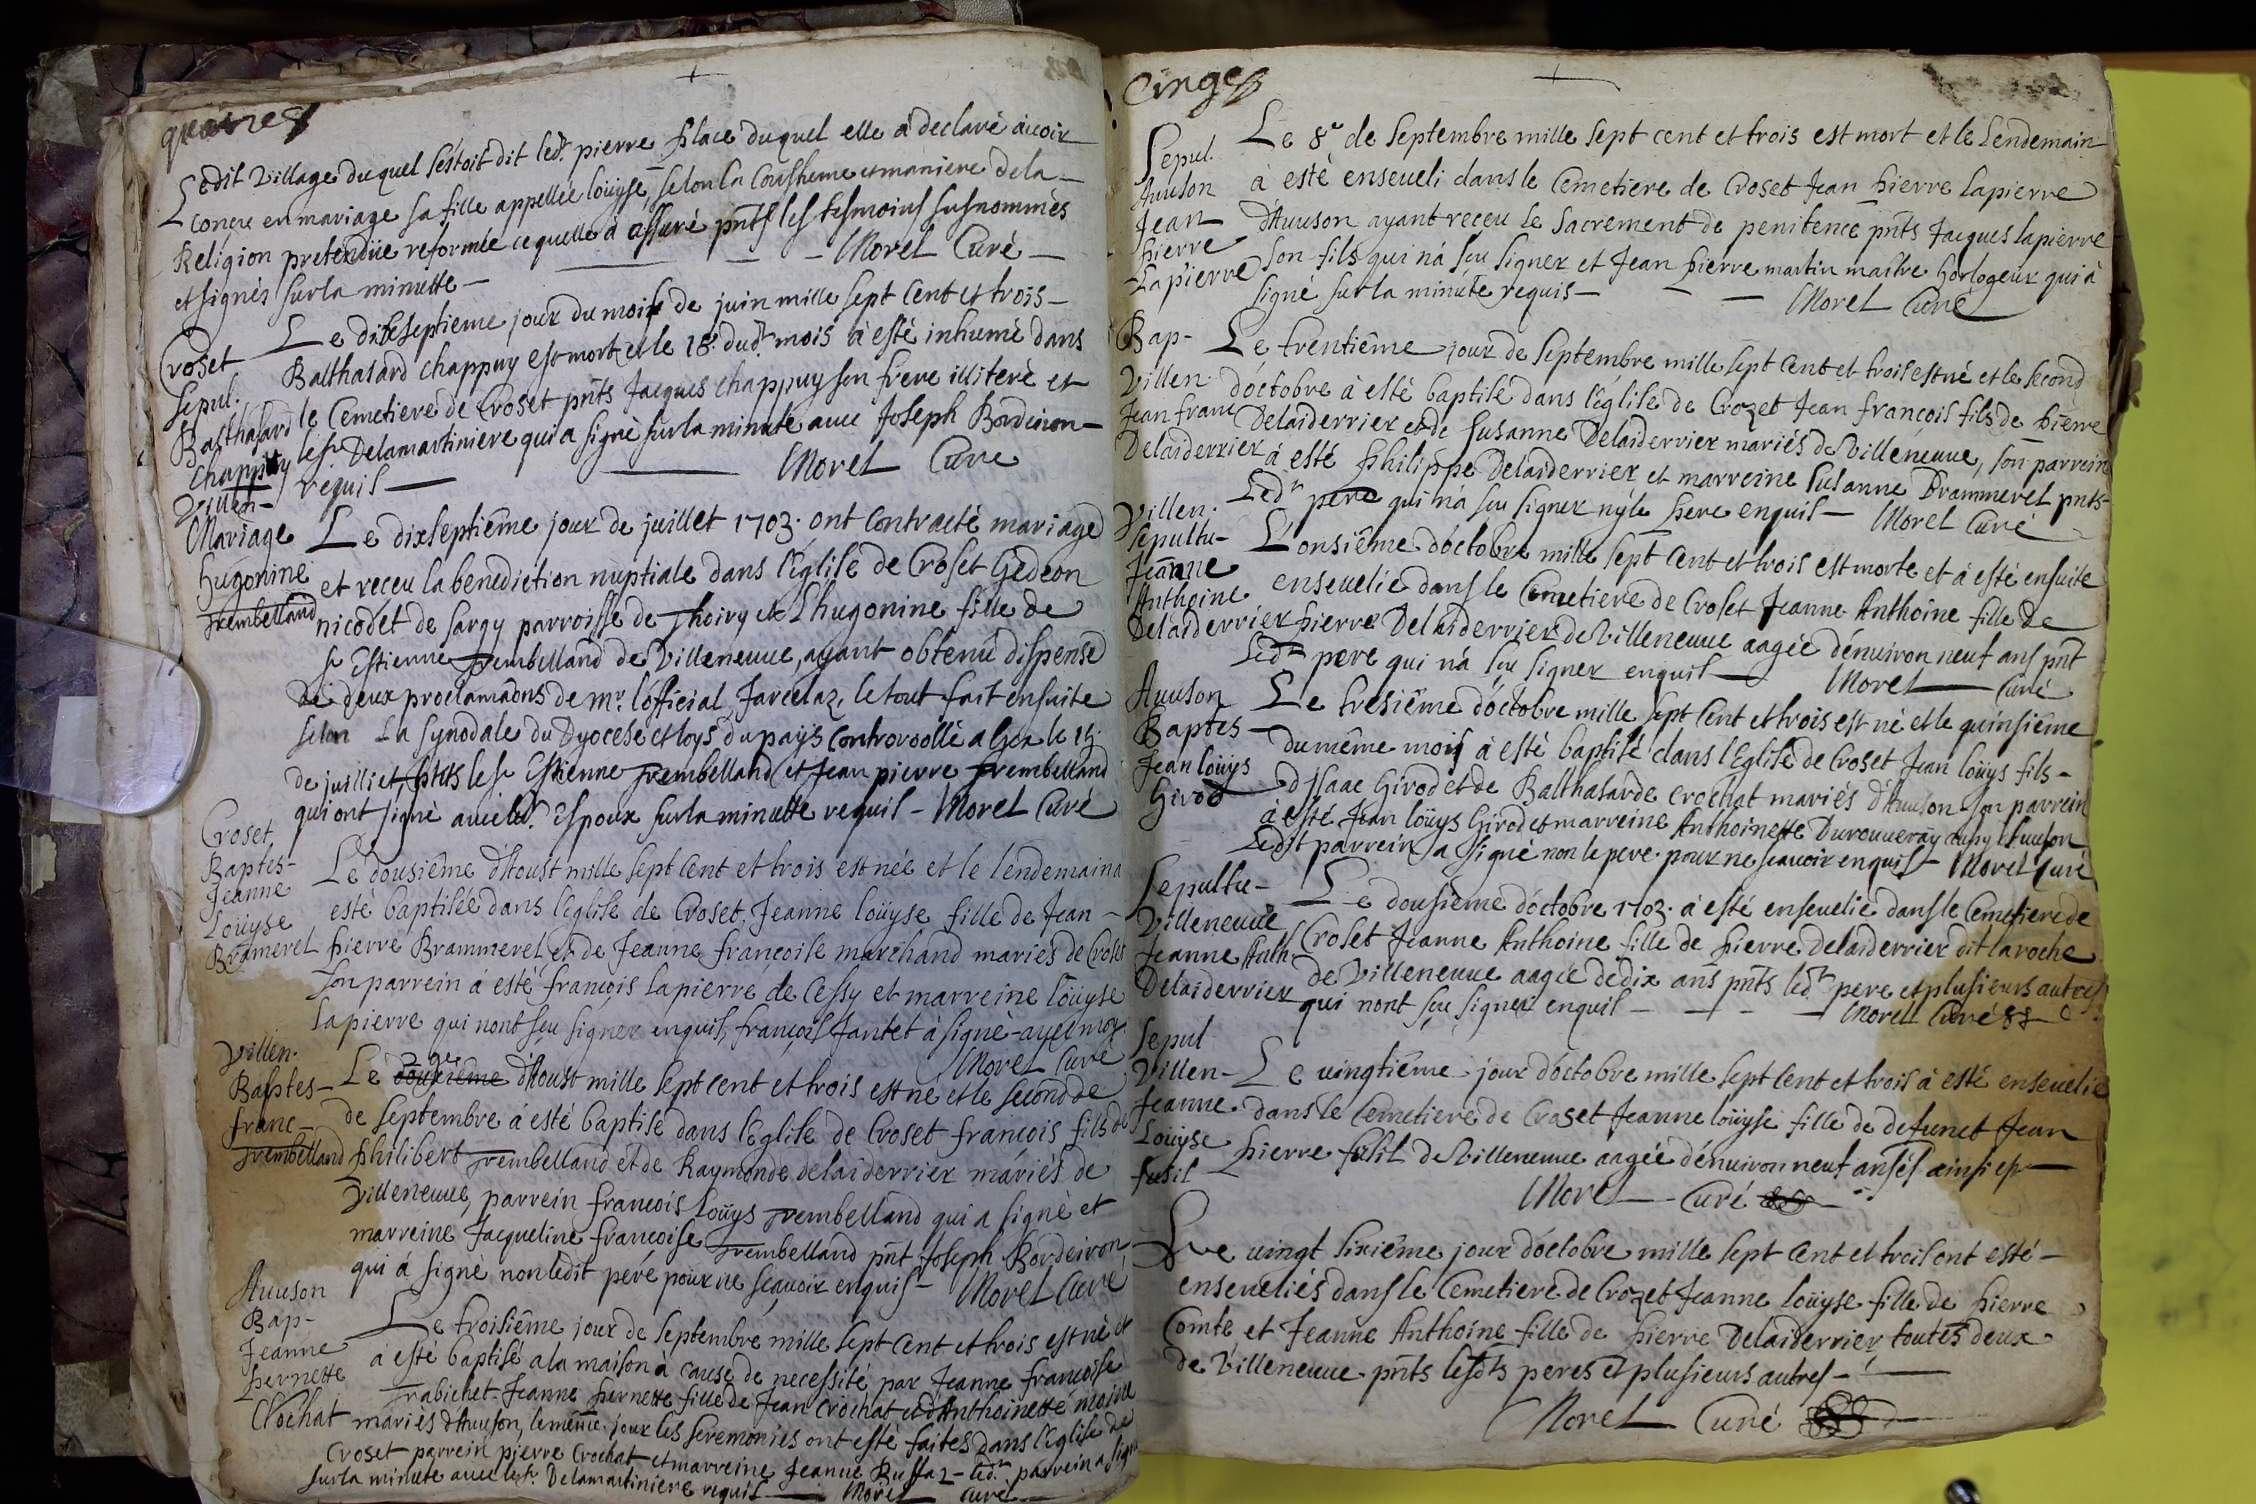 quatre
Ledit village duquel s'estoit dit led.t pierre place duquel elle à declaré àvoir
conçu en mariage sa fille appellée loüyse, selon la Coustume et maniere de la
Religion pretendüe reformée ce quelle à assuré pnts les tesmoins susnommés
et signés sur la minutte — Morel Curé
Croset
Sepul.
Balthasard
Chappuy
Le dixseptieme jour du mois de juin mille sept cent et trois
Balthasard chappuy est mort et le 18. dud.t mois à esté inhumé dans
le Cemetiere de Croset pnts Jacques chappuy son frere illiteré et
le sr Delamartiniere qui a signé sur la minute avec Joseph Bordeiron
requis — Morel Curé
Villen-
Mariage
hugonine
Trembelland
Le dixseptiême jour de juillet 1703. ont contracté mariage
et receu la benediction nuptiale dans l'église de Croset Gedeon
nicodet de sargy parroisse de Thoiry et hugonine fille de
sr Estienne Trembelland de Villeneuve, ayant obtenu dispense
de deux proclamaõns de mr. lofficial Jarcelaz, le tout fait ensuite
selon La synodale du Dyocese et loys du païs Controroollé a Gex le 15.
de juilliet, pnts le sr Estienne Trembelland et Jean pierre Trembelland
qui ont signé avec led.t Espoux sur la minutte requis — Morel Curé
Croset
Baptes-
Jeanne
Loüyse
Bramerel
Le dousiême d'Aoust mille sept cent et trois est née et le lendemain a
esté baptisée dans l'église de Croset, Jeanne loüyse fille de Jean
pierre Brammerel et de Jeanne françoise marchand mariés de Croset
son parrein à esté françois lapierre de Cessy et marreine loüyse
lapierre qui n'ont sçu signer enquis, françois Jantet à signé avec moy
Morel Curé
Villen.
Baptes-
franc-
Trembelland
Le 29e d'Aoust mille sept cent et trois est né et le second de
de septembre à esté baptisé dans l'Eglise de Croset françois fils de
philibert Trembelland et de Raymonde delaiderrier mariés de
Villeneuve, parrein françois Loüys Trembelland qui a signé et
marreine Jacqueline françoise Trembelland pnt Joseph Bordeiron
qui à signé non ledit pere pour ne scavoir enquis — Morel Curé
Avuson
Bap-
Jeanne
pernette
Crochat
Le troisiême jour de septembre mille sept cent et trois est né et
à esté baptisé a la maison à cause de necessité par Jeanne françoise
Trabichet Jeanne pernette fille de Jean Crochat et d'Anthoinette moine
mariés d'Avuson, le même jour les seremonies ont esté faites dans l'église de
Croset parrein pierre Crochat et marreine Jeanne Buffaz — led.t parrein a signé
sur la minute avec le sr. Delamartiniere requis — Morel Curé
Cinq
Sepul.
Avuson
Jean
pierre
Lapierre
Le 8e de septembre mille sept cent et trois est mort et le Lendemain
à esté enseveli dans le Cemetiere de Croset Jean pierre lapierre
d'Avuson ayant receu le sacrement de penitence pnts Jacques lapierre
son fils qui n'á sçu signer et Jean pierre martin maître horlogeur qui à
signé sur la minute requis — Morel Curé
Bap-
Villen.
Jean franc
Delaiderrier
Le trentiême jour de septembre mille sept cent et trois est né et le second
d'óctobre à esté baptisé dans l'église de Crozet Jean françois fils de pierre
Delaiderrier et de susanne Delaiderrier mariés de Villeneuve, son parrein
à esté philippe Delaiderrier et marreine susanne Brammerel pnts
Led.t pere qui n'á sçu signer ny le pere enquis — Morel Curé
Villen.
sepultu-
Jeanne
Anthoine
Delaiderrier
L'onsiême d'óctobre mille sept cent et trois est morte et à esté ensuite
ensevelie dans le Cemetiere de Croset Jeanne Anthoine fille de
pierre Delaiderrier de Villeneuve aagée d'énviron neuf ans pnt
Led.t pere qui n'á sçu signer enquis — Morel Curé
Avuson
Baptes
Jean loüys
Girod
Le tresiême d'óctobre mille sept cent et trois est né et le quinsiême
du même mois à esté baptisé dans l'Eglise de Croset Jean loüys fils
d'Isaac Girod et de Balthasarde Crochat mariés d'Avuson son parrein
à esté Jean loüys Girod et marreine Anthoinette Durouveray d'Avuson
Ledit parrein a signé non le pere pour ne scavoir enquis — Morel Curé
Sepultu-
Villeneuve
Jeanne Anth.
Delaiderrier
Le dousiême d'óctobre 1703. à esté ensevelie dans le Cemetiere de
Croset Jeanne Anthoine fille de pierre Delaiderrier dit laroche
de Villeneuve aagée de dix ans pnts led.t pere et plusieurs autres
qui n'ont sçu signer enquis — Morel Curé
Sepul
Villen-
Jeanne
Loüyse
fusil
Le vingtiême jour d'óctobre mille sept cent et trois à esté ensevelie
dans le Cemetiere de Croset Jeanne loüyse fille de defunct Jean
pierre fusil de Villeneuve aagée d'énviron neuf ans ainsi est
Morel Curé
Le vingt sixiême jour d'óctobre mille sept cent et trois ont esté
enseveliés dans le Cemetiere de Crozet Jeanne loüyse fille de pierre
Comte et Jeanne Anthoine fille de pierre Delaiderrier toutes deux
de Villeneuve pnts lesdts peres et plusieurs autres —
Morel Curé